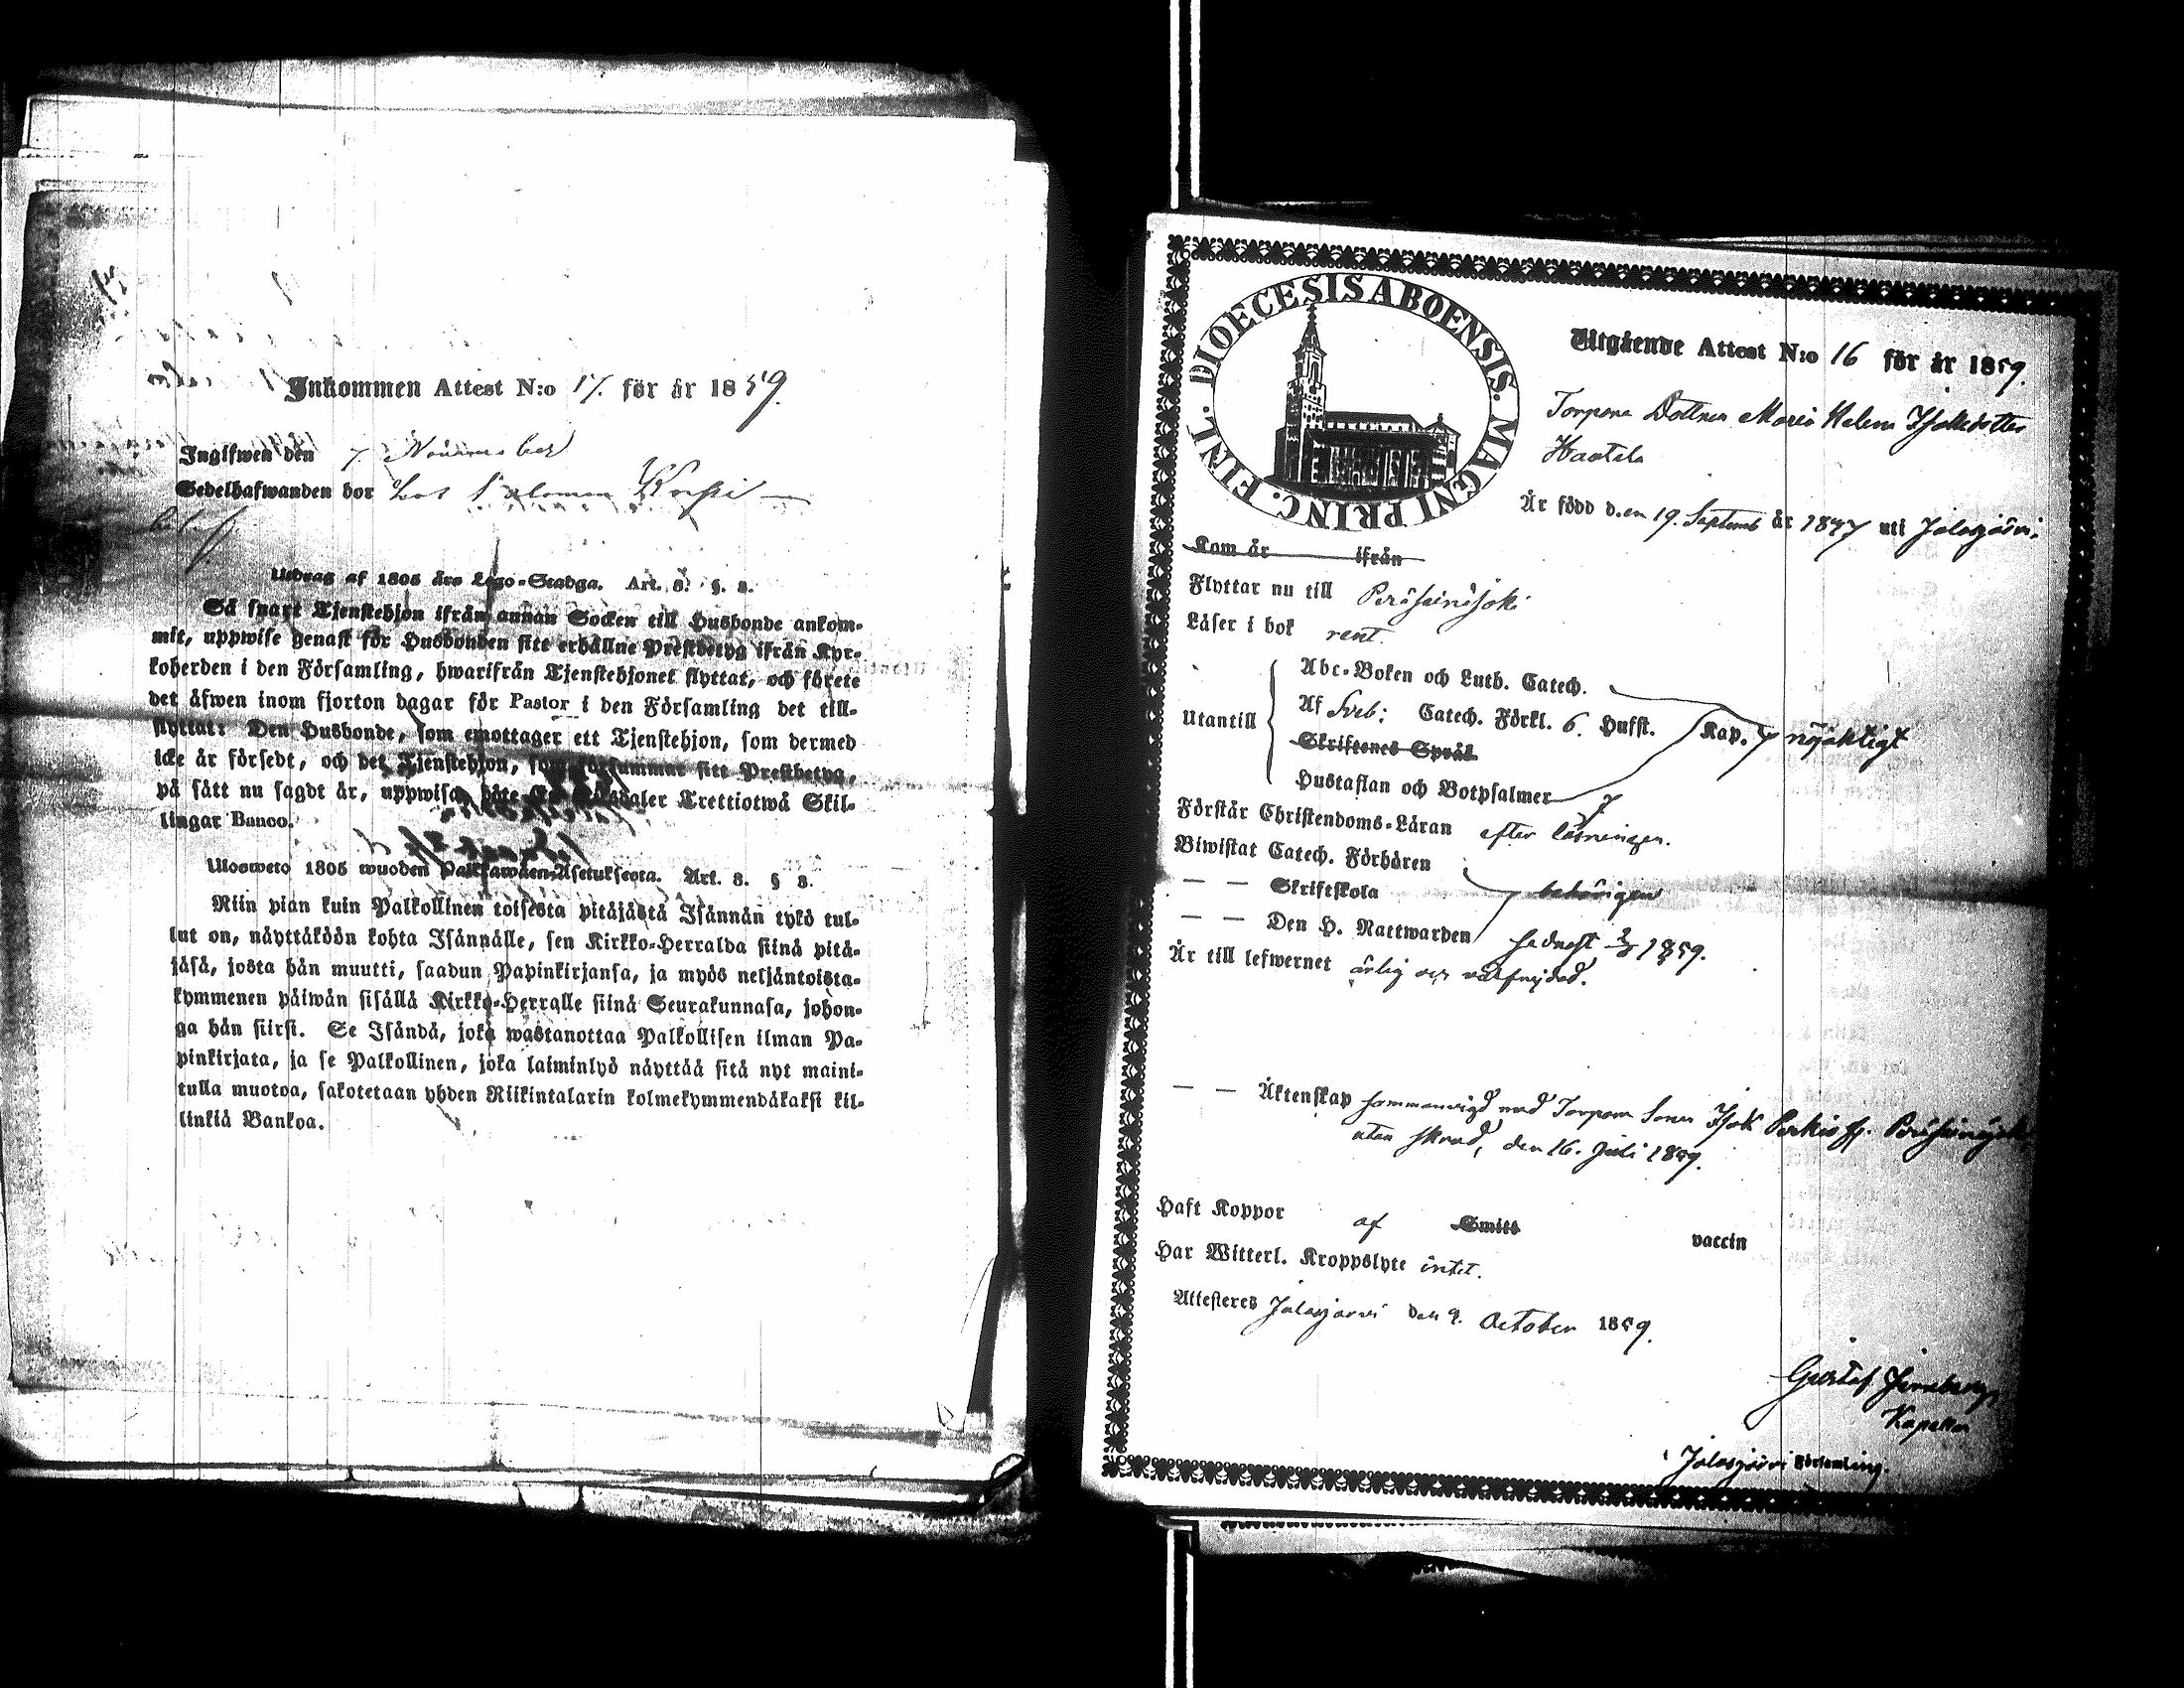 Inkommen Attest N:o 17. för år 1859.
Inglfwen den 7 November
Sedelhafwanden bor hos Salomon Korpi
Utdrag af 1805 års Lego-Stadga. Art. 8. §. 8.
Så snart Tjenstehjon ifrån annan Socken till Husbonde ankom-
mit, uppwise genast för Husbonden sitt erhållne Prestbetyg ifrån Kyr-
koherden i den Församling, hwarifrån Tjenstehjonet flyttat, och förete
det äfwen inom fjorton dagar för Pastor i den Församling det till-
flyttat: Den Husbonde, som emottager ett Tjenstehjon, som dermed
icke är försedt, och det Tjenstehjon, som försummar sitt Prestbetyg,
på sätt nu sagdt är, uppwisa, böte En Riksdaler Trettiotwå Skil-
lingar Banco.
Ulosweto 1805 wuoden Palkkawäen-Asetuksesta. Art. 8. § 8.
Niin pian kuin Palkollinen toisesta pitäjästä Isännän tykö tul-
lut on, näyttäköön kohta Isännälle, sen Kirkko-Herralda siinä pitä-
jäsä, josta hän muutti, saadun Papinkirjansa, ja myös neljäntoista-
kymmenen päiwän sisällä Kirkko-Herralle siinä Seurakunnasa, johon-
ga hän siirsi. Se Isändä, joka wastanottaa Palkollisen ilman Pa-
pinkirjata, ja se Palkollinen, joka laiminlyö näyttää sitä nyt maini-
tulla muotoa, sakotetaan yhden Riikintalarin kolmekymmendäkaksi kil-
linkiä Bankoa.
DIOECESIS ABOENSIS. MAGNI PRINC. FINL.
Utgående Attest N:o 16 för år 1859.
Torpare Dottren Maria Helena Isaksdotter
Hautala
Är född den 19. Septemb år 1837 uti Jalasjärvi.
Kom år ifrån
Flyttar nu till Peräseinäjoki
Läser i bok rent.
Abc-Boken och Luth. Catech.
Utantill Af Sveb: Catech. Förkl. 6. Hufst. Kap. nöjaktigt
Skriftenes Språk
Hustaflan och Botpsalmer
Förstår Christendoms-Läran efter läsningen.
Biwistat Catech. Förhören
— — Skriftskola behörigen
— — Den H. Nattwarden sednast 1859.
Är till lefwernet ärlig och välfrejdad.
— — Äktenskap sammanvigd med Torpare Sonen Isak fr. Peräseinäjoki
utan skrud, den 16. Juli 1859.
Haft Koppor af Smitt vaccin
Har Witterl. Kroppslyte intet.
Attesteres Jalasjärvi den 9. October 1859.
Gustaf
Kapellan
i Jalasjärvi Församling.